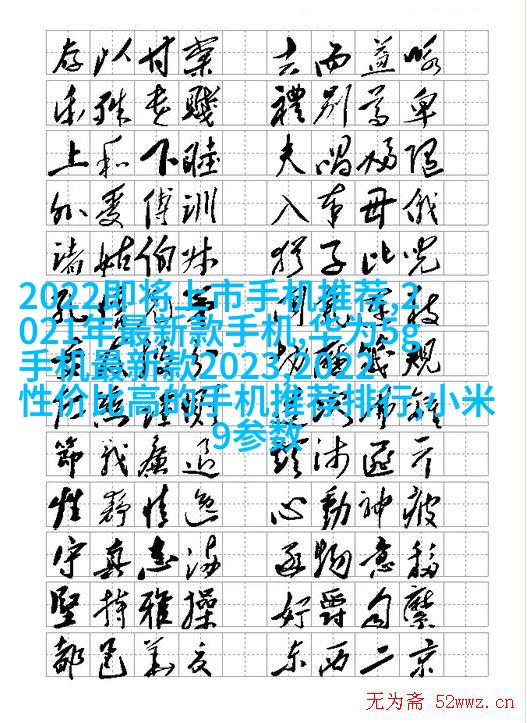 存以甘棠 去而益咏
乐殊贵贱 禮别尊卑
上和下睦 夫唱婦随
外受傅训 入奉母仪
诸姑伯叔 犹子比児
2022即将上市手机推荐,2
021年最新款手机,华为5g
手机最新款2023,2022
性价比高的手机推荐排行,小米
9参数
節義廉退 颠沛匪亏
性静情逸 心動神疲
守真志满 逐物意移
坚持雅操 好爵自縻
都邑華夏 东西二京
无为斋 52wwz.cn